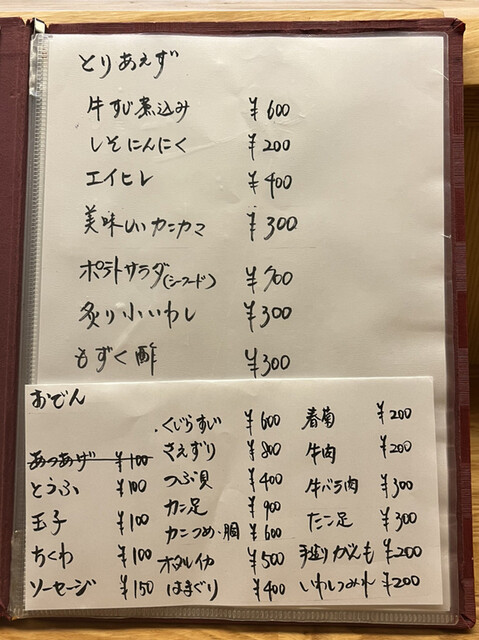 とりあえず
牛すじ煮込み ¥600
しそにんにく ¥200
エイヒレ ¥400
美味しいカニカマ ¥300
ポテトサラダ(シーフード) ¥700
炙り小いわし ¥300
もずく酢 ¥300
おでん
あつあげ ¥100
とうふ ¥100
玉子 ¥100
ちくわ ¥100
ソーセージ ¥150
くじらすじ ¥600
さえずり ¥800
つぶ貝 ¥400
カニ足 ¥900
カニつめ・胴 ¥600
ホタルイカ ¥500
はまぐり ¥400
春菊 ¥200
牛肉 ¥200
牛バラ肉 ¥300
たこ足 ¥300
手造りがんも ¥200
いわしつみれ ¥200